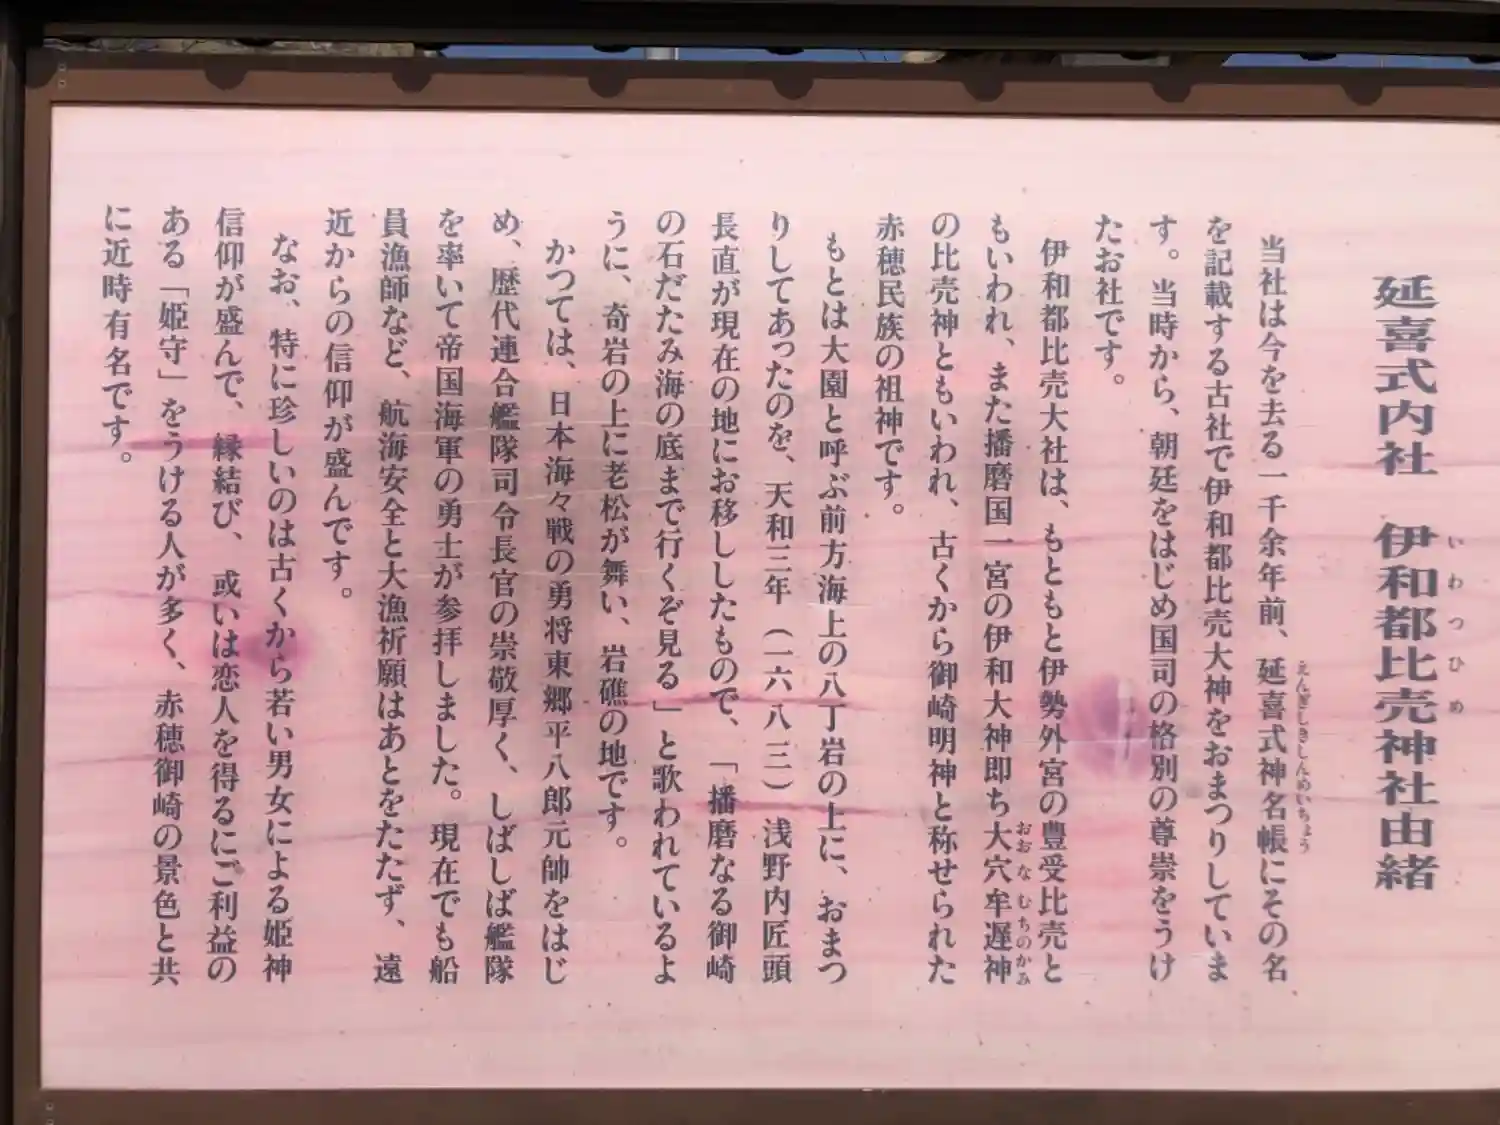 延喜式内社 伊和都比売神社由緒
いわつひめ
当社は今を去る一千余年前、延喜式神名帳にその名
えんぎしきしんめいちょう
を記載する古社で伊和都比売大神をおまつりしていま
す。当時から、朝廷をはじめ国司の格別の尊崇をうけ
たお社です。
伊和都比売大社は、もともと伊勢外宮の豊受比売と
もいわれ、また播磨国一宮の伊和大神即ち大穴牟遅神
おおなむちのかみ
の比売神ともいわれ、古くから御崎明神と称せられた
赤穂民族の祖神です。
もとは大園と呼ぶ前方海上の八丁岩の上に、おまつ
りしてあったのを、天和三年(一六八三)浅野内匠頭
長直が現在の地にお移ししたもので、「播磨なる御崎
の石だたみ海の底まで行くぞ見る」と歌われているよ
うに、奇岩の上に老松が舞い、岩礁の地です。
かつては、日本海々戦の勇将東郷平八郎元帥をはじ
め、歴代連合艦隊司令長官の崇敬厚く、しばしば艦隊
を率いて帝国海軍の勇士が参拝しました。現在でも船
員漁師など、航海安全と大漁祈願はあとをたたず、遠
近からの信仰が盛んです。
なお、特に珍しいのは古くから若い男女による姫神
信仰が盛んで、縁結び、或いは恋人を得るにご利益の
ある「姫守」をうける人が多く、赤穂御崎の景色と共
に近時有名です。